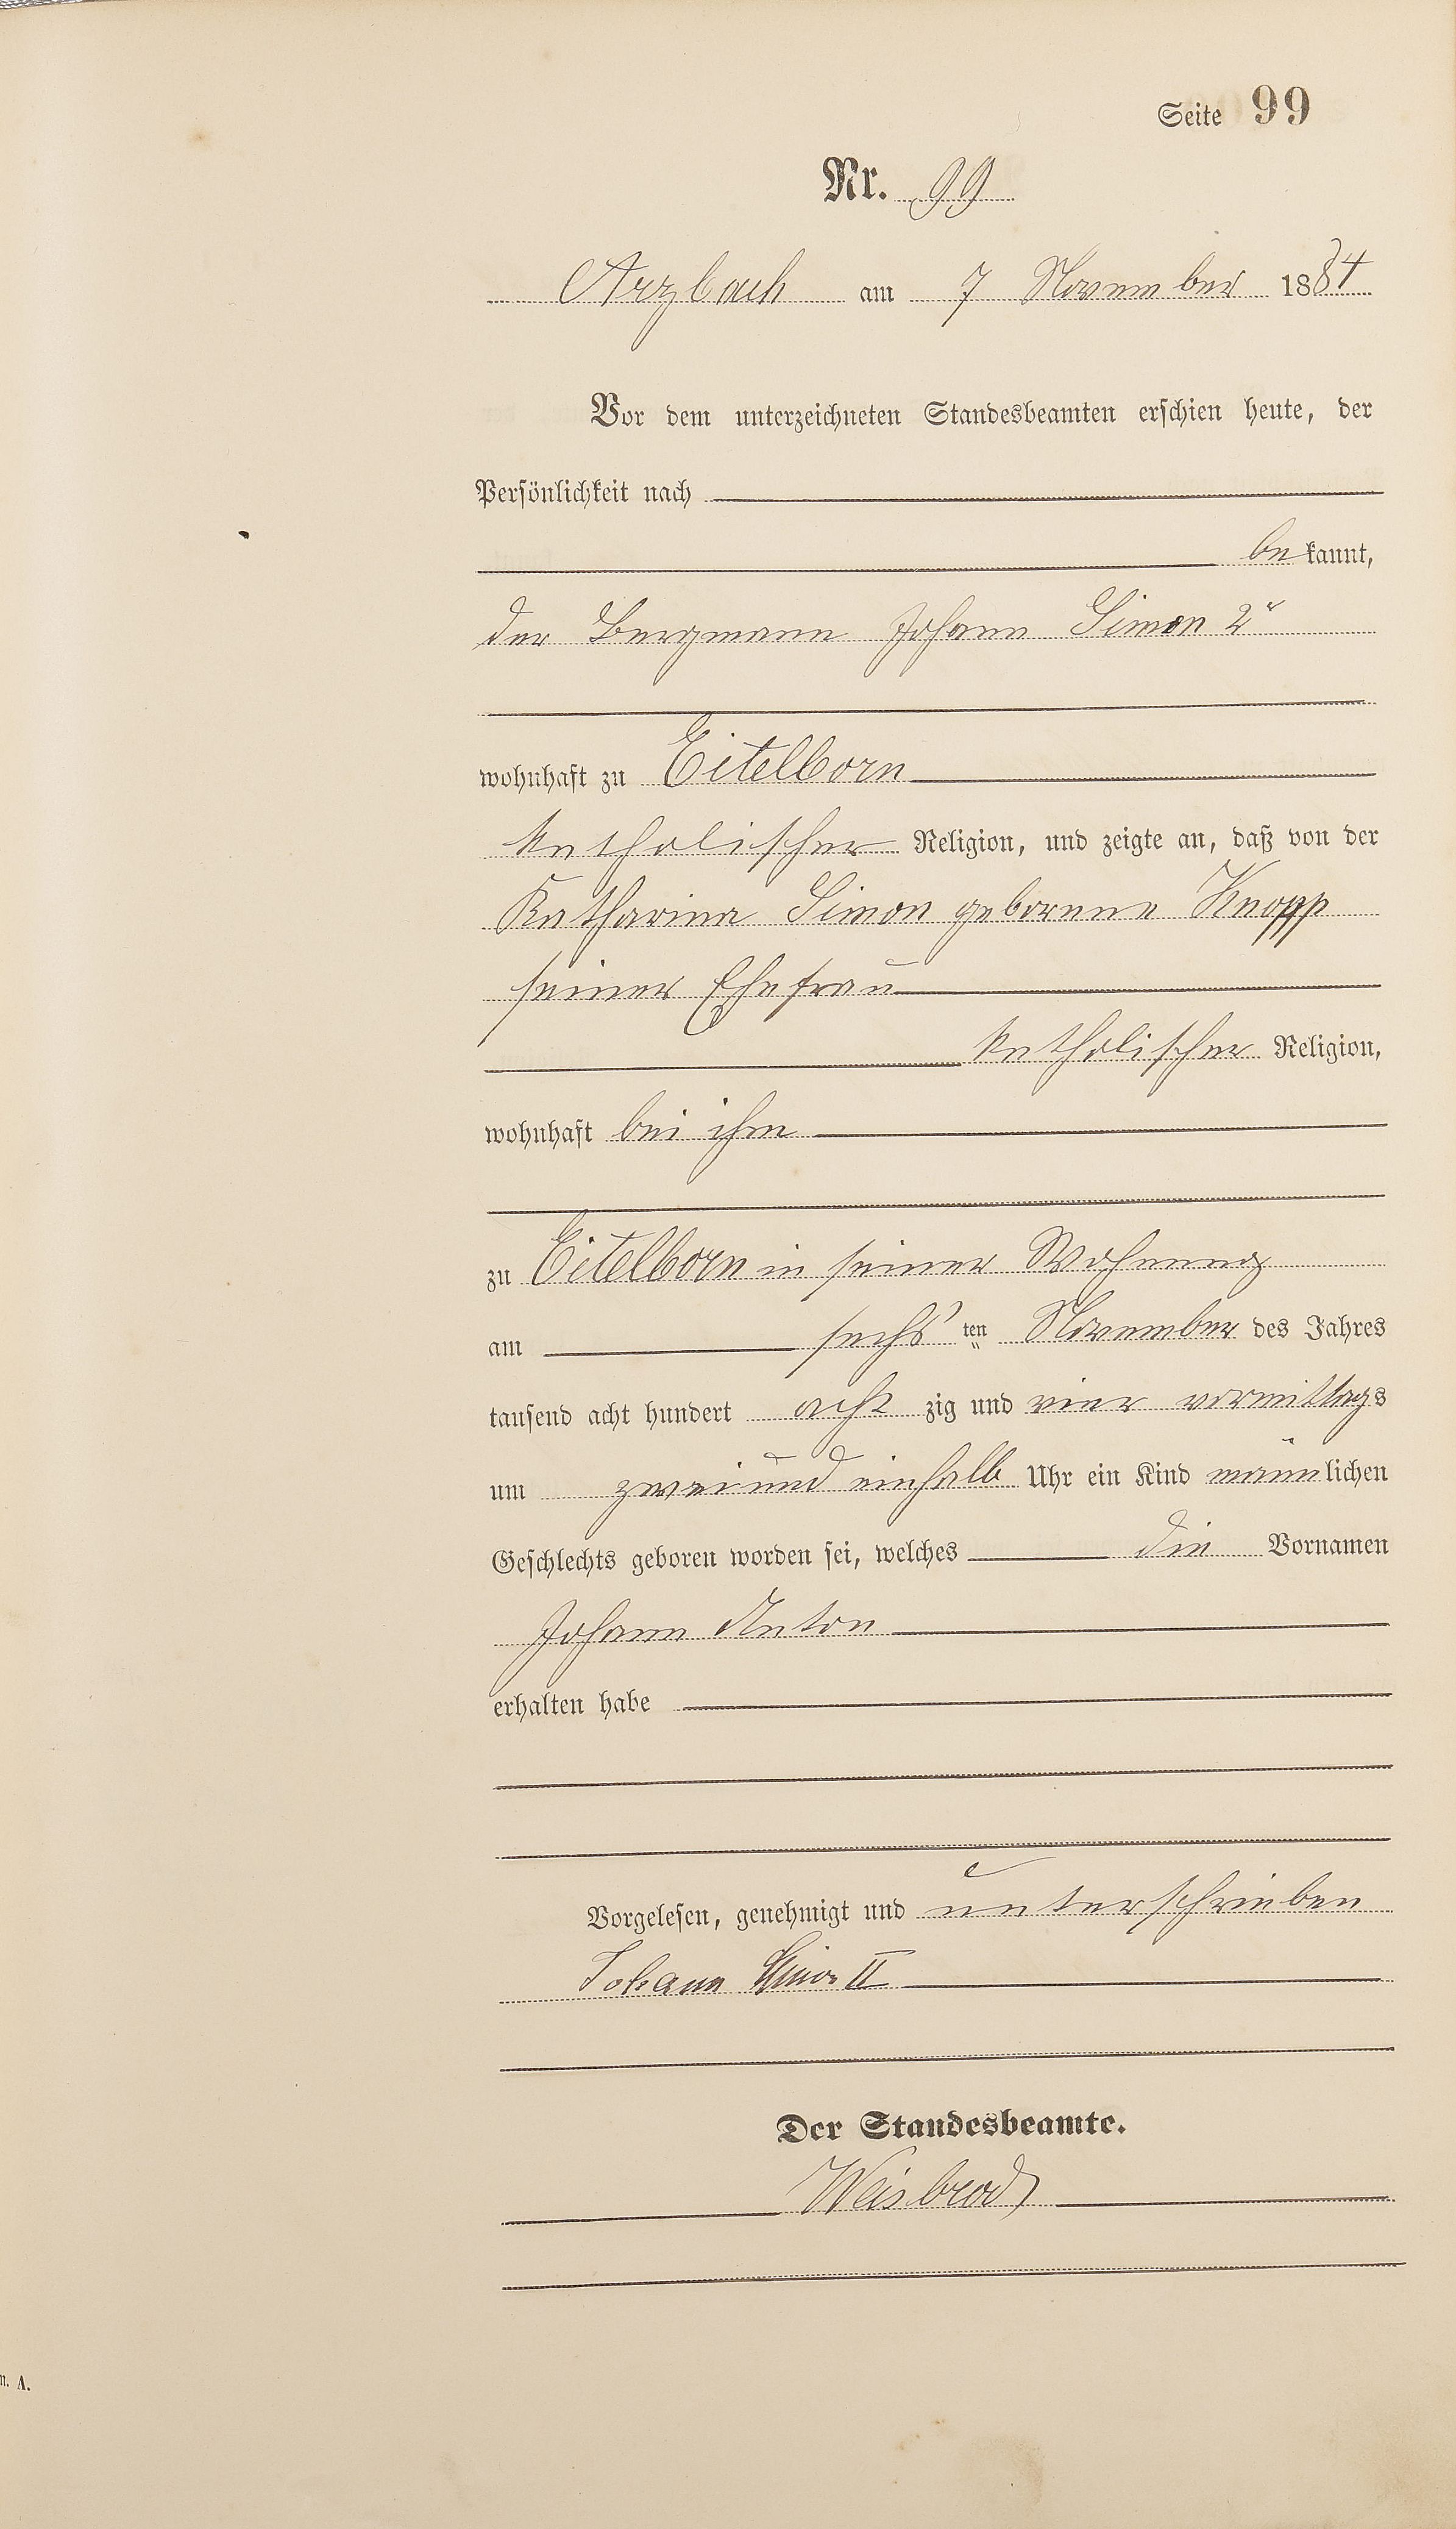 Seite 99
Nr. 99
Arzbach am 7 November 1884
Vor dem unterzeichneten Standesbeamten erschien heute, der
Persönlichkeit nach
bekannt,
der Bergmann Johann Simon 2r
wohnhaft zu Eitelborn
katholischer Religion, und zeigte an, daß von der
Katharina Simon geborene Knopp
seiner Ehefrau
katholischer Religion,
wohnhaft bei ihm
zu Eitelborn in seiner Wohnung
am sechsten November des Jahres
tausend acht hundert achtzig und vier vormittags
um zwei und einhalb Uhr ein Kind männlichen
Geschlechts geboren worden sei, welches die Vornamen
Johann Anton
erhalten habe
Vorgelesen, genehmigt und unterschrieben
Johann Simon II
Der Standesbeamte.
Weisbrod
n. A.